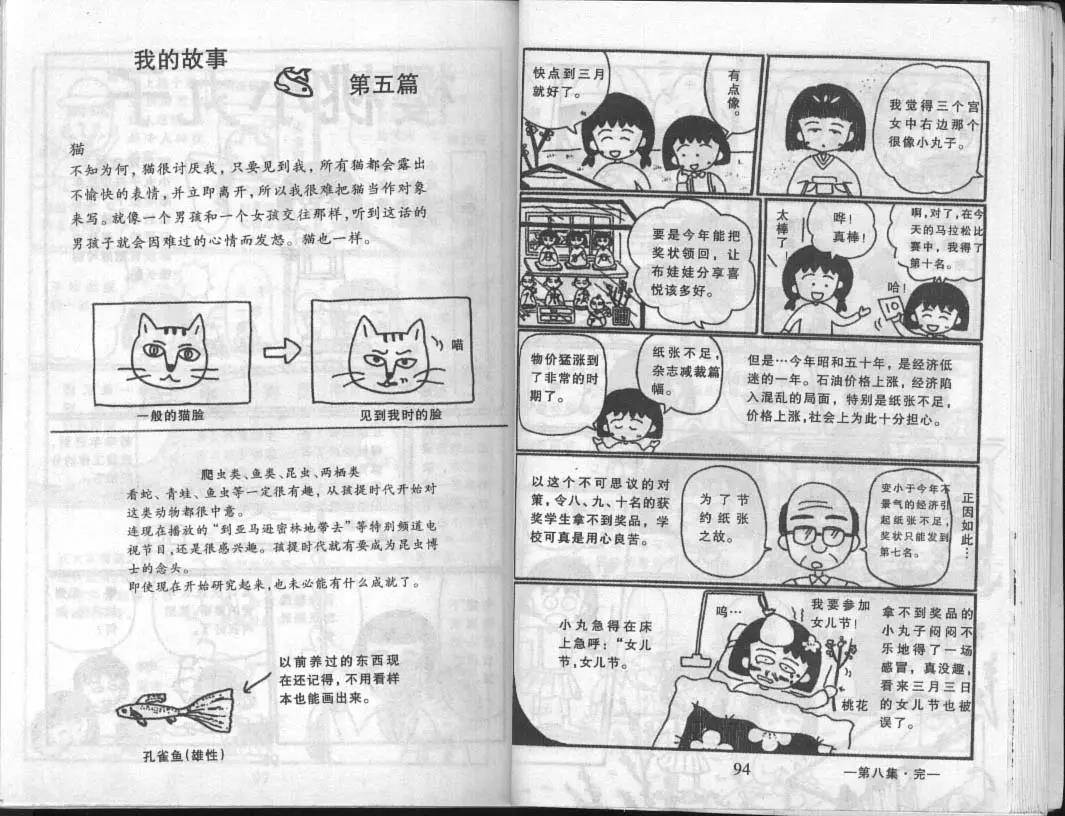 我的故事
第五篇
猫
不知为何，猫很讨厌我，只要见到我，所有猫都会露出
不愉快的表情，并立即离开，所以我很难把猫当作对象
来写。就像一个男孩和一个女孩交往那样，听到这话的
男孩子就会因难过的心情而发怒。猫也一样。
喵
一般的猫脸
见到我时的脸
爬虫类、鱼类、昆虫、两栖类
看蛇、青蛙、鱼虫等一定很有趣，从孩提时代开始对
这类动物都很中意。
连现在播放的“到亚马逊密林地带去”等特别频道电
视节目，还是很感兴趣。孩提时代就有要成为昆虫博
士的念头。
即使现在开始研究起来，也未必能有什么成就了。
以前养过的东西现
在还记得，不用看样
本也能画出来。
孔雀鱼(雄性)
快点到三月
就好了。
有点像。
我觉得三个宫
女中右边那个
很像小丸子。
要是今年能把
奖状领回，让
布娃娃分享喜
悦该多好。
太棒了
哗！
真棒！
啊，对了，在今
天的马拉松比
赛中，我得了
第十名。
哈！
10
物价猛涨到
了非常的时
期了。
纸张不足，
杂志减裁篇
幅。
但是…今年昭和五十年，是经济低
迷的一年。石油价格上涨，经济陷
入混乱的局面，特别是纸张不足，
价格上涨，社会上为此十分担心。
以这个不可思议的对
策，令八、九、十名的获
奖学生拿不到奖品，学
校可真是用心良苦。
为了节
约纸张
之故。
变小于今年不
景气的经济引
起纸张不足，
奖状只能发到
第七名。
正因如此…
小丸急得在床
上急呼：“女儿
节，女儿节。
呜…
我要参加
女儿节！
桃花
拿不到奖品的
小丸子闷闷不
乐地得了一场
感冒，真没趣，
看来三月三日
的女儿节也被
误了。
94
—第八集·完—